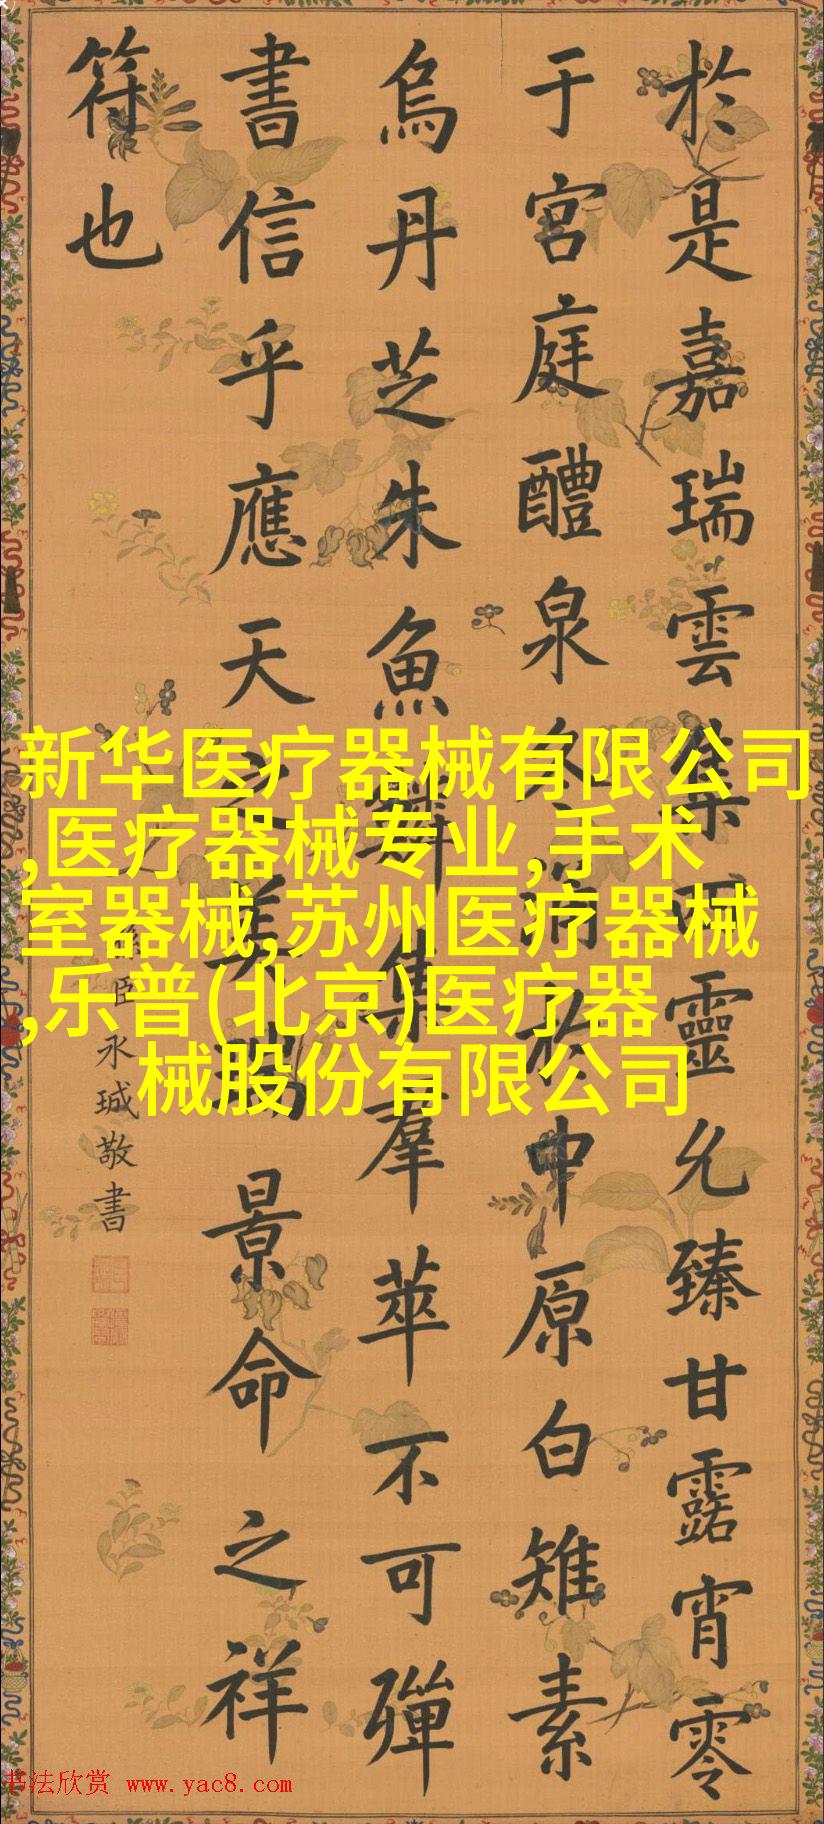 於是嘉瑞雲集四靈允臻甘露宵零
于宮庭醴泉冬涌於中原白雉素
烏丹芝朱魚鱗集羣萃不可殫
書信乎應天之美瑞景命之祥
符也
臣永珹敬書
新华医疗器械有限公司
,医疗器械专业,手术
室器械,苏州医疗器械
,乐普(北京)医疗器
械股份有限公司
书法欣赏 www.yac8.com